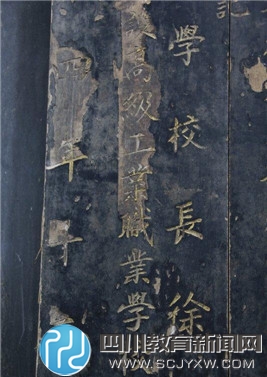 記
學校長徐
高級工業職業學
年十
四川教育新闻网
WWW.SCJYXW.COM